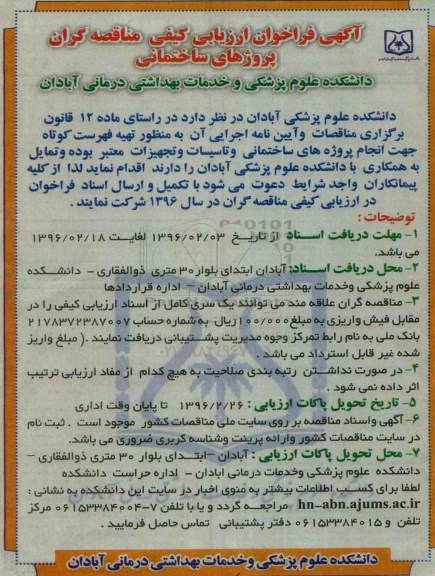 آگهی فراخوان ارزیابی کیفی مناقصه گران
پروژهای ساختمانی
دانشکده علوم پزشکی و خدمات بهداشتی درمانی آبادان
دانشکده علوم پزشکی آبادان در نظر دارد در راستای ماده ۱۲ قانون
برگزاری مناقصات وآیین نامه اجرایی آن به منظور تهیه فهرست کوتاه
جهت انجام پروژه های ساختمانی وتاسیسات وتجهیزات معتبر بوده وتمایل
به همکاری با دانشکده علوم پزشکی آبادان را دارند اقدام نماید لذا از کلیه
پیمانکاران واجد شرایط دعوت می شود با تکمیل و ارسال اسناد فراخوان
در ارزیابی کیفی مناقصه گران در سال ۱۳۹۶ شرکت نمایند .
توضیحات :
۱- مهلت دریافت اسناد از تاریخ ۱۳۹۶/۰۲/۰۳ لغایت ۱۳۹۶/۰۲/۱۸
می باشد.
۲- محل دریافت اسناد: آبادان ابتدای بلوار ۳۰ متری ذوالفقاری - دانشکده
علوم پزشکی وخدمات بهداشتی درمانی آبادان - اداره قراردادها
۳- مناقصه گران علاقه مند می توانند یک سری کامل از اسناد ارزیابی کیفی را در
مقابل فیش واریزی به مبلغ ۱۰۰/۰۰۰ ریال به شماره حساب ۲۱۷۸۳۷۲۳۸۷۰۰۷
بانک ملی به نام رابط تمرکز وجوه مدیریت پشتیبانی دریافت نمایند .( مبلغ واریز
شده غیر قابل استرداد می باشد .
۴- در صورت نداشتن رتبه بندی صلاحیت به هیچ کدام از مفاد ارزیابی ترتیب
اثر داده نمی شود .
۵- تاریخ تحویل پاکات ارزیابی : ۱۳۹۶/۲/۲۶ تا پایان وقت اداری
۶-آگهی واسناد مناقصه بر روی سایت ملی مناقصات کشور موجود است . ثبت نام
در سایت مناقصات کشور وارائه پرینت وشناسه کاربری ضروری می باشد.
۷- محل تحویل پاکات ارزیابی : آبادان -ابتدای بلوار ۳۰ متری ذوالفقاری -
دانشکده علوم پزشکی وخدمات درمانی ابادان - اداره حراست دانشکده
لطفا برای کسب اطلاعات بیشتر به منوی اخبار در سایت این دانشکده به نشانی :
hn-abn.ajums.ac.ir مراجعه گردد و یا با تلفن ۷-۰۶۱۵۳۳۸۴۰۰۴ مرکز
تلفن و ۰۶۱۵۳۳۸۴۰۱۵ دفتر پشتیبانی تماس حاصل فرمایید .
دانشکده علوم پزشکی وخدمات بهداشتی درمانی آبادان